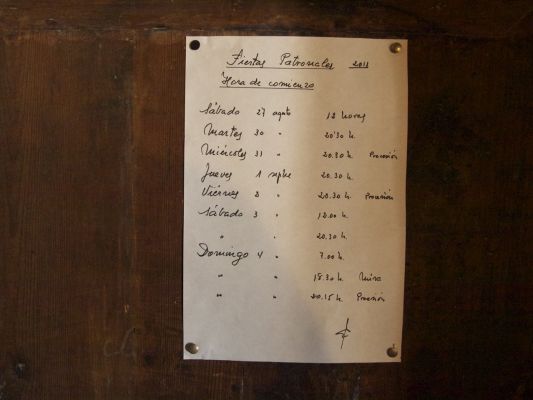 Fiestas Patronales 2011
Hora de comienzo
Sábado 27 agosto 12 horas
Martes 30 " 20'30 h.
Miércoles 31 " 20.30 h. Procesión
Jueves 1 sepbre 20.30 h.
Viernes 2 " 20.30 h. Procesión
Sábado 3 " 12.00 h.
" " 20.30 h.
Domingo 4 " 7.00 h.
" " 18.30 h. Misa
" " 20.15 h. Procesión